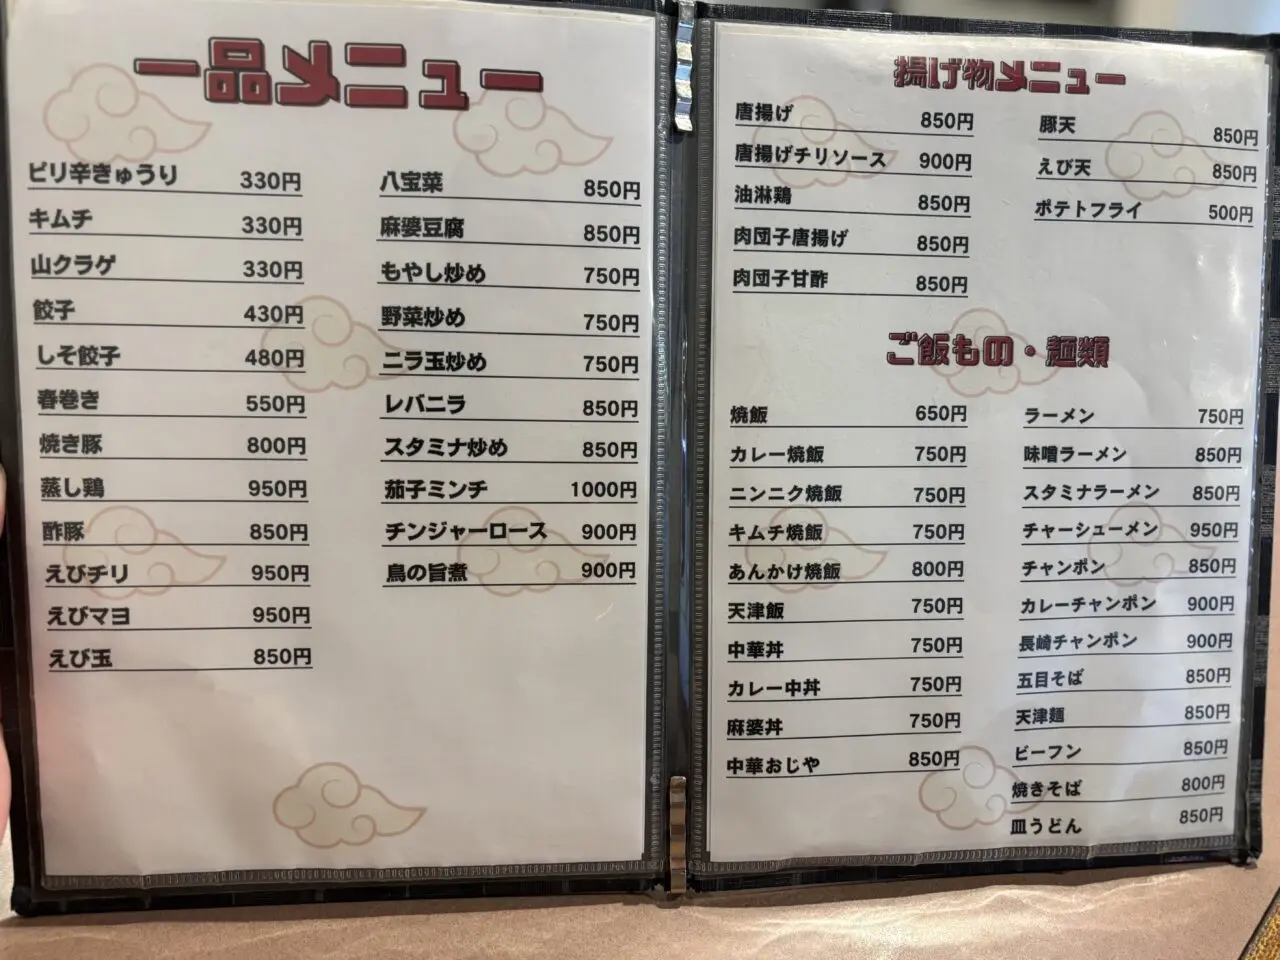 一品メニュー
ピリ辛きゅうり 330円
キムチ 330円
山クラゲ 330円
餃子 430円
しそ餃子 480円
春巻き 550円
焼き豚 800円
蒸し鶏 950円
酢豚 850円
えびチリ 950円
えびマヨ 950円
えび玉 850円
八宝菜 850円
麻婆豆腐 850円
もやし炒め 750円
野菜炒め 750円
ニラ玉炒め 750円
レバニラ 850円
スタミナ炒め 850円
茄子ミンチ 1000円
チンジャーロース 900円
鳥の旨煮 900円
揚げ物メニュー
唐揚げ 850円
唐揚げチリソース 900円
油淋鶏 850円
肉団子唐揚げ 850円
肉団子甘酢 850円
豚天 850円
えび天 850円
ポテトフライ 500円
ご飯もの・麺類
焼飯 650円
カレー焼飯 750円
ニンニク焼飯 750円
キムチ焼飯 750円
あんかけ焼飯 800円
天津飯 750円
中華丼 750円
カレー中丼 750円
麻婆丼 750円
中華おじや 850円
ラーメン 750円
味噌ラーメン 850円
スタミナラーメン 850円
チャーシューメン 950円
チャンポン 850円
カレーチャンポン 900円
長崎チャンポン 900円
五目そば 850円
天津麺 850円
ビーフン 850円
焼きそば 800円
皿うどん 850円